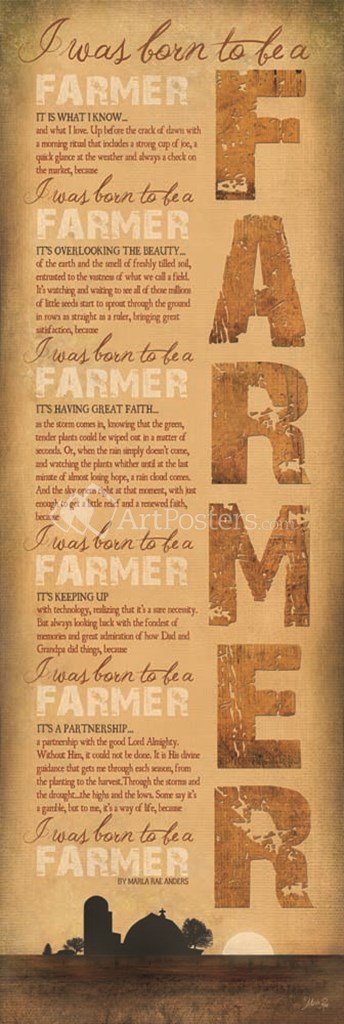 I was born to be a
FARMER
FARMER
IT IS WHAT I KNOW...
and what I love. Up before the crack of dawn with
a morning ritual that includes a strong cup of joe, a
quick glance at the weather and always a check on
the market, because
I was born to be a
FARMER
IT'S OVERLOOKING THE BEAUTY...
of the earth and the smell of freshly tilled soil,
entrusted to the vastness of what we call a field.
It's watching and waiting to see all of those millions
of little seeds start to sprout through the ground
in rows as straight as a ruler, bringing great
satisfaction, because
I was born to be a
FARMER
IT'S HAVING GREAT FAITH...
as the storm comes in, knowing that the green,
tender plants could be wiped out in a matter of
seconds. Or, when the rain simply doesn't come,
and watching the plants whither until at the last
minute of almost losing hope, a rain cloud comes.
And the sky opens right at that moment, with just
enough to get a little relief and a renewed faith,
because
ArtPosters.com
I was born to be a
FARMER
IT'S KEEPING UP
with technology, realizing that it's a sure necessity.
But always looking back with the fondest of
memories and great admiration of how Dad and
Grandpa did things, because
I was born to be a
FARMER
IT'S A PARTNERSHIP...
a partnership with the good Lord Almighty.
Without Him, it could not be done. It is His divine
guidance that gets me through each season, from
the planting to the harvest.Through the storms and
the drought...the highs and the lows. Some say it's
a gamble, but to me, it's a way of life, because
I was born to be a
FARMER
BY MARLA RAE ANDERS